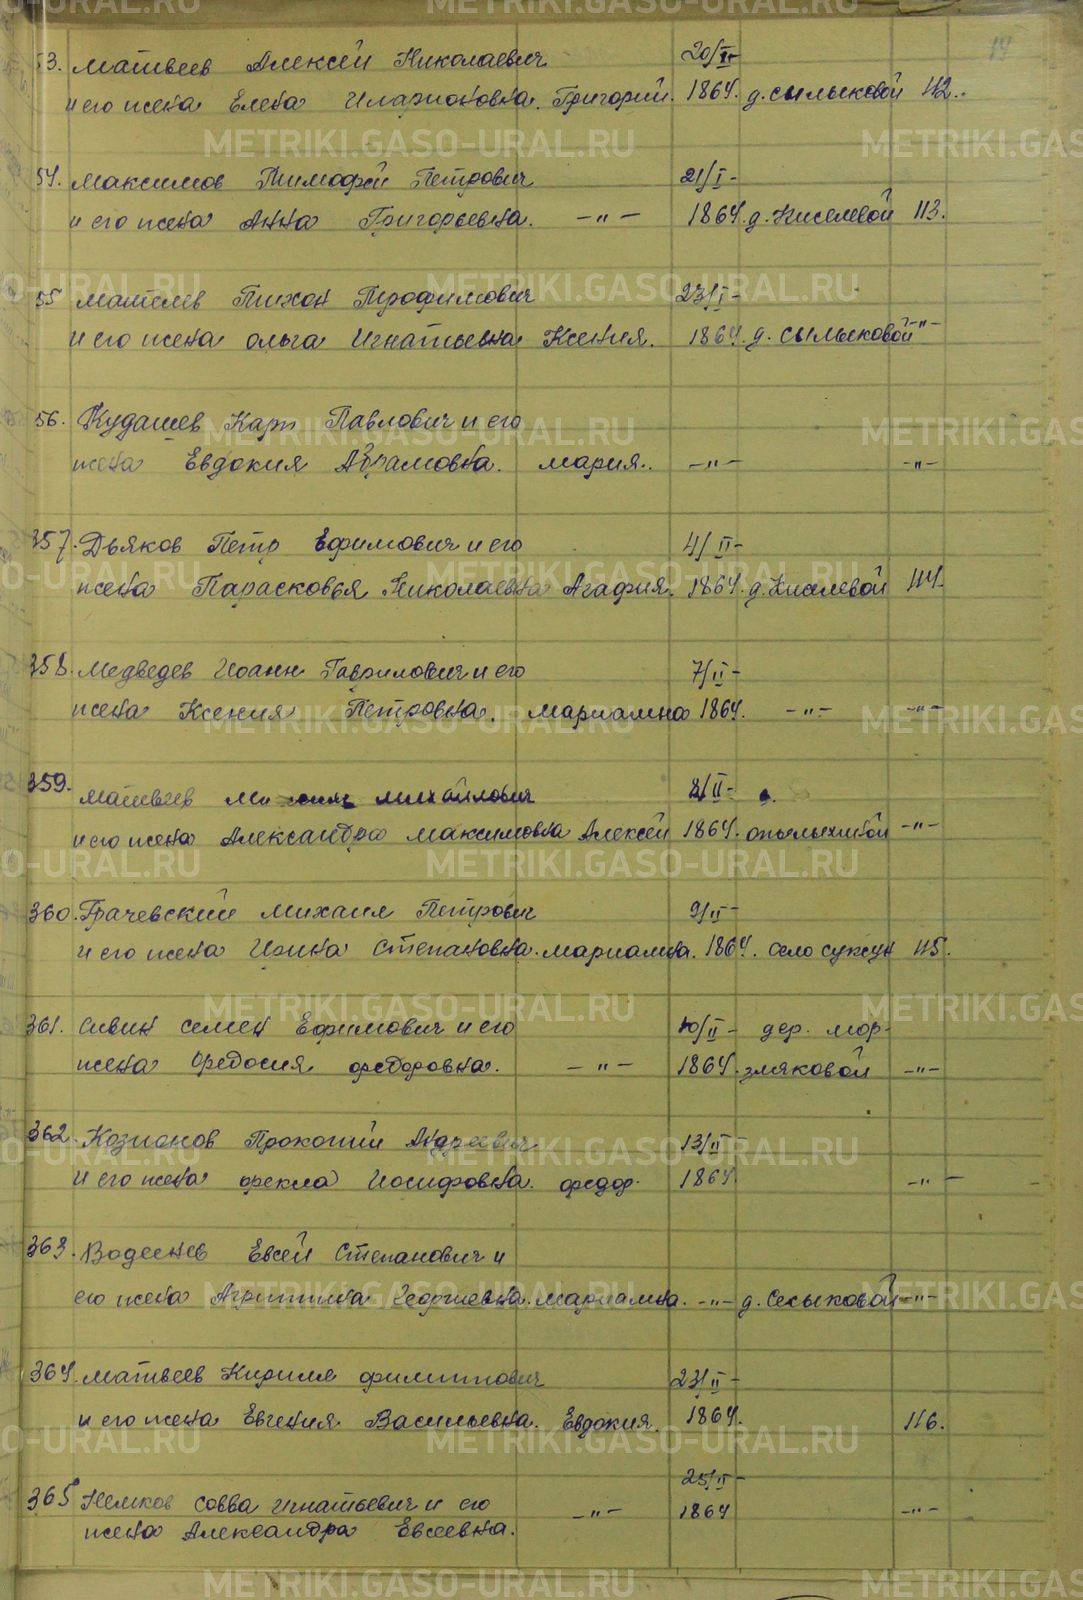 14
53. Матвеев Алексей Николаевич 20/II-
и его жена Елена Иларионовна. Григорий. 1864. д. Сылысковой 112..
54. Максимов Тимофей Петрович 21/I-
и его жена Анна Григорьевна. -"- 1864. д. Киселевой 113.
55 Тихон Трофимович 23/I-
и его жена Ольга Игнатьевна Ксения. 1864. д. Сылысковой -"-
56. Кудашев Карп Павлович и его
жена Евдокия Абрамовна. Мария.. -"- -"-
357. Дьяков Петр Ефимович и его 4/II-
жена Парасковья Николаевна Агафия. 1864. д. Киселевой 114.
358. Медведев Иоанн Гаврилович и его 7/II-
жена Ксения Петровна. Мариамна 1864. -"- -"-
359. Матвеев Михайлович 8/II-
и его жена Александра Максимовна Алексей 1864. -"-
360. Грачевский Михаил Петрович 9/II-
и его жена Ирина Степановна. Мариамна. 1864. село Суксун 115.
361. Сивин Семен Ефимович и его 10/II- дер. Мор-
жена Федосия Федоровна. -"- 1864. зляковой -"-
362. Козионов Прокопий Андреевич 13/II
и его жена Фекла Иосифовна. Федор. 1864. -"-
363. Водеенев Евсей Степанович и
его жена Агриппина Георгиевна. Мариамна. -"- д. Сесыковой -"-
364. Матвеев Кирилл Филиппович 23/II-
и его жена Евгения Васильевна. Евдокия. 1864. 116.
365 Немков Савва Игнатьевич и его 25/II-
жена Александра Евсеевна. -"- 1864 -"-
METRIKI.GASO-URAL.RU